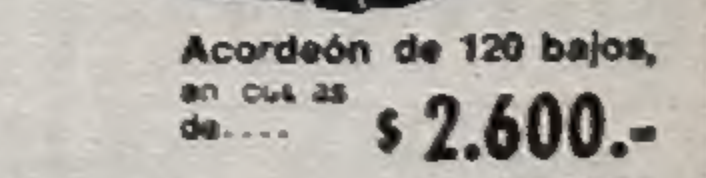 Acordeón de 120 bajos,
en cuotas
de.... $ 2.600.-